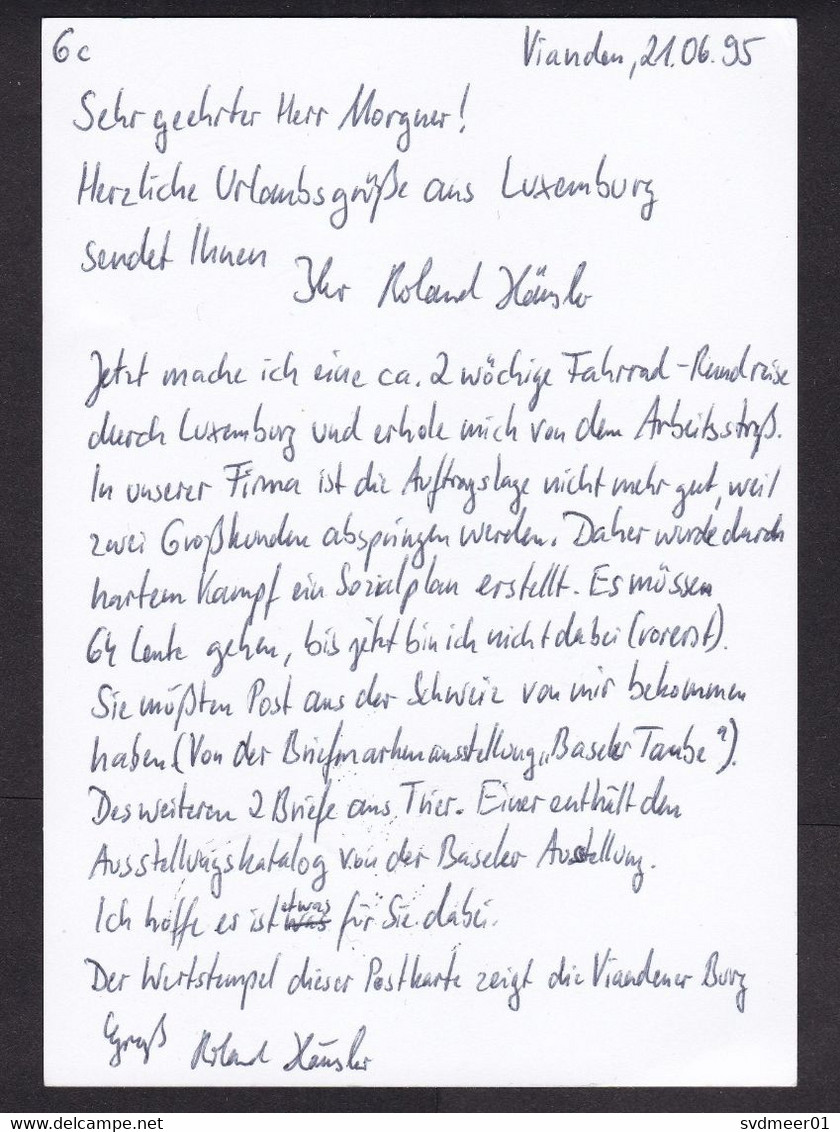 6c
Vianden, 21.06.95
Sehr geehrter Herr Morgner!
Herzliche Urlaubsgrüße aus Luxemburg
sendet Ihnen
Ihr Roland Häusler
Jetzt mache ich eine ca. 2 wöchige Fahrrad-Rundreise
durch Luxemburg und erhole mich von dem Arbeitsstreß.
In unserer Firma ist die Auftragslage nicht mehr gut, weil
zwei Großkunden abspringen werden. Daher wurde durch
hartem Kampf ein Sozialplan erstellt. Es müssen
64 Leute gehen, bis jetzt bin ich nicht dabei (vorerst).
Sie müßten Post aus der Schweiz von mir bekommen
haben (Von der Briefmarkenausstellung „Baseler Taube").
Des weiteren 2 Briefe aus Trier. Einer enthält den
Ausstellungskatalog von der Baseler Austellung.
Ich hoffe es ist etwas für Sie dabei.
Der Wertstempel dieser Postkarte zeigt die Viandener Burg
Gruß Roland Häusler
svdmeer01